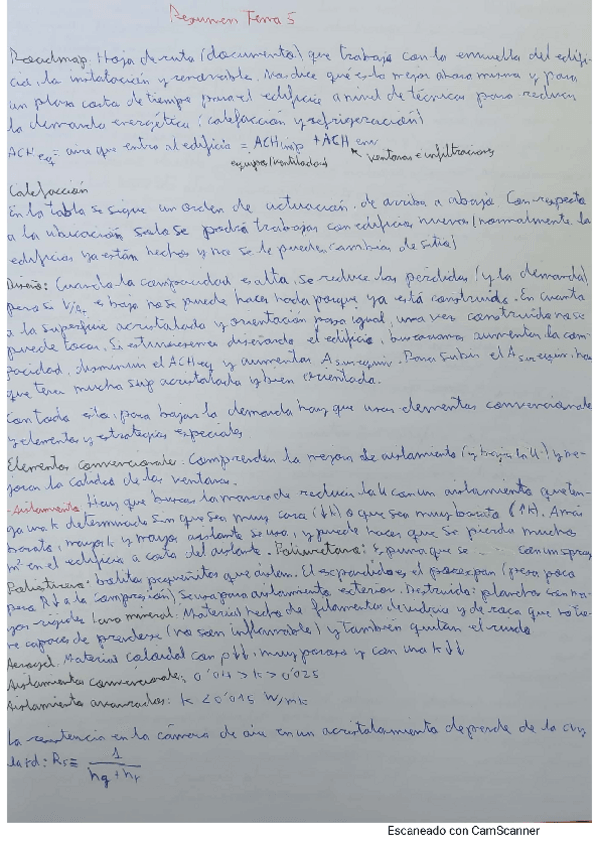 Resumen Tema 5
Roadmap: Hoja de ruta (documento) que trabaja con la envuelta del edifi-
cio, la instalación y renovable. Nos dice que es lo mejor ahora mismo y para
un plazo corto de tiempo para el edificio a nivel de técnicas para reducir
la demanda energética (calefacción y refrigeración)
ACH eq = aire que entra al edificio = ACH imp + ACH env
equipos (ventilador) ventanas e infiltraciones
Calefacción
En la tabla se sigue un orden de actuación de arriba a abajo. Con respecto
a la ubicación solo se podrá trabajar con edificios nuevos (normalmente los
edificios ya están hechos y no se le pueden cambiar de sitio)
Diseño: Cuando la compacidad es alta, se reduce las pérdidas (y la demanda)
pero si V/At es bajo no se puede hacer nada porque ya está construido. En cuanto
a la superficie acristalada y orientación pasa igual, una vez construido no se
puede tocar. Si estuviéramos diseñando el edificio, buscaríamos aumentar la com-
pacidad, disminuir el ACH eq y aumentar A sur equiv. Para subir el A sur equiv, hay
que tener mucha sup acristalada y bien orientada.
Contado esto, para bajar la demanda hay que usar elementos convencionales
y elementos y estrategias especiales
Elementos convencionales: Comprenden la mejora de aislamiento (y bajar la U) y me-
jorar la calidad de las ventanas.
-Aislamiento: Hay que buscar la manera de reducir la U con un aislamiento que ten-
ga una k determinada sin que sea muy cara (↓k) o que sea muy barato (↑k). A más
barato, mayor k y mayor aislante se usa, y puede hacer que se pierda muchos
m² en el edificio a costa del aislante. Poliuretano: Espuma que se con un spray
Poliestireno: bolitas pequeñitas que aíslan. El expandido es el porexpan (pesa poco
pero R↓ a la compresión) Se usa para aislamiento exterior. Extruido: planchas con ma-
yor rigidez. Lana mineral: Material hecho de filamentos de vidrio y de roca que no tie-
ne capaces de prenderse (no son inflamable) y también quitan el ruido
Aerogel: Material coloidal con ρ↓↓, muy poroso y con una k↓↓
Aislamientos convencionales: 0'04 > k > 0'025
Aislamiento avanzados: k < 0'015 W/mk
La resistencia en la cámara de aire en un acristalamiento depende de la
d: Rs ≡ 1
hg + hr
Escaneado con CamScanner